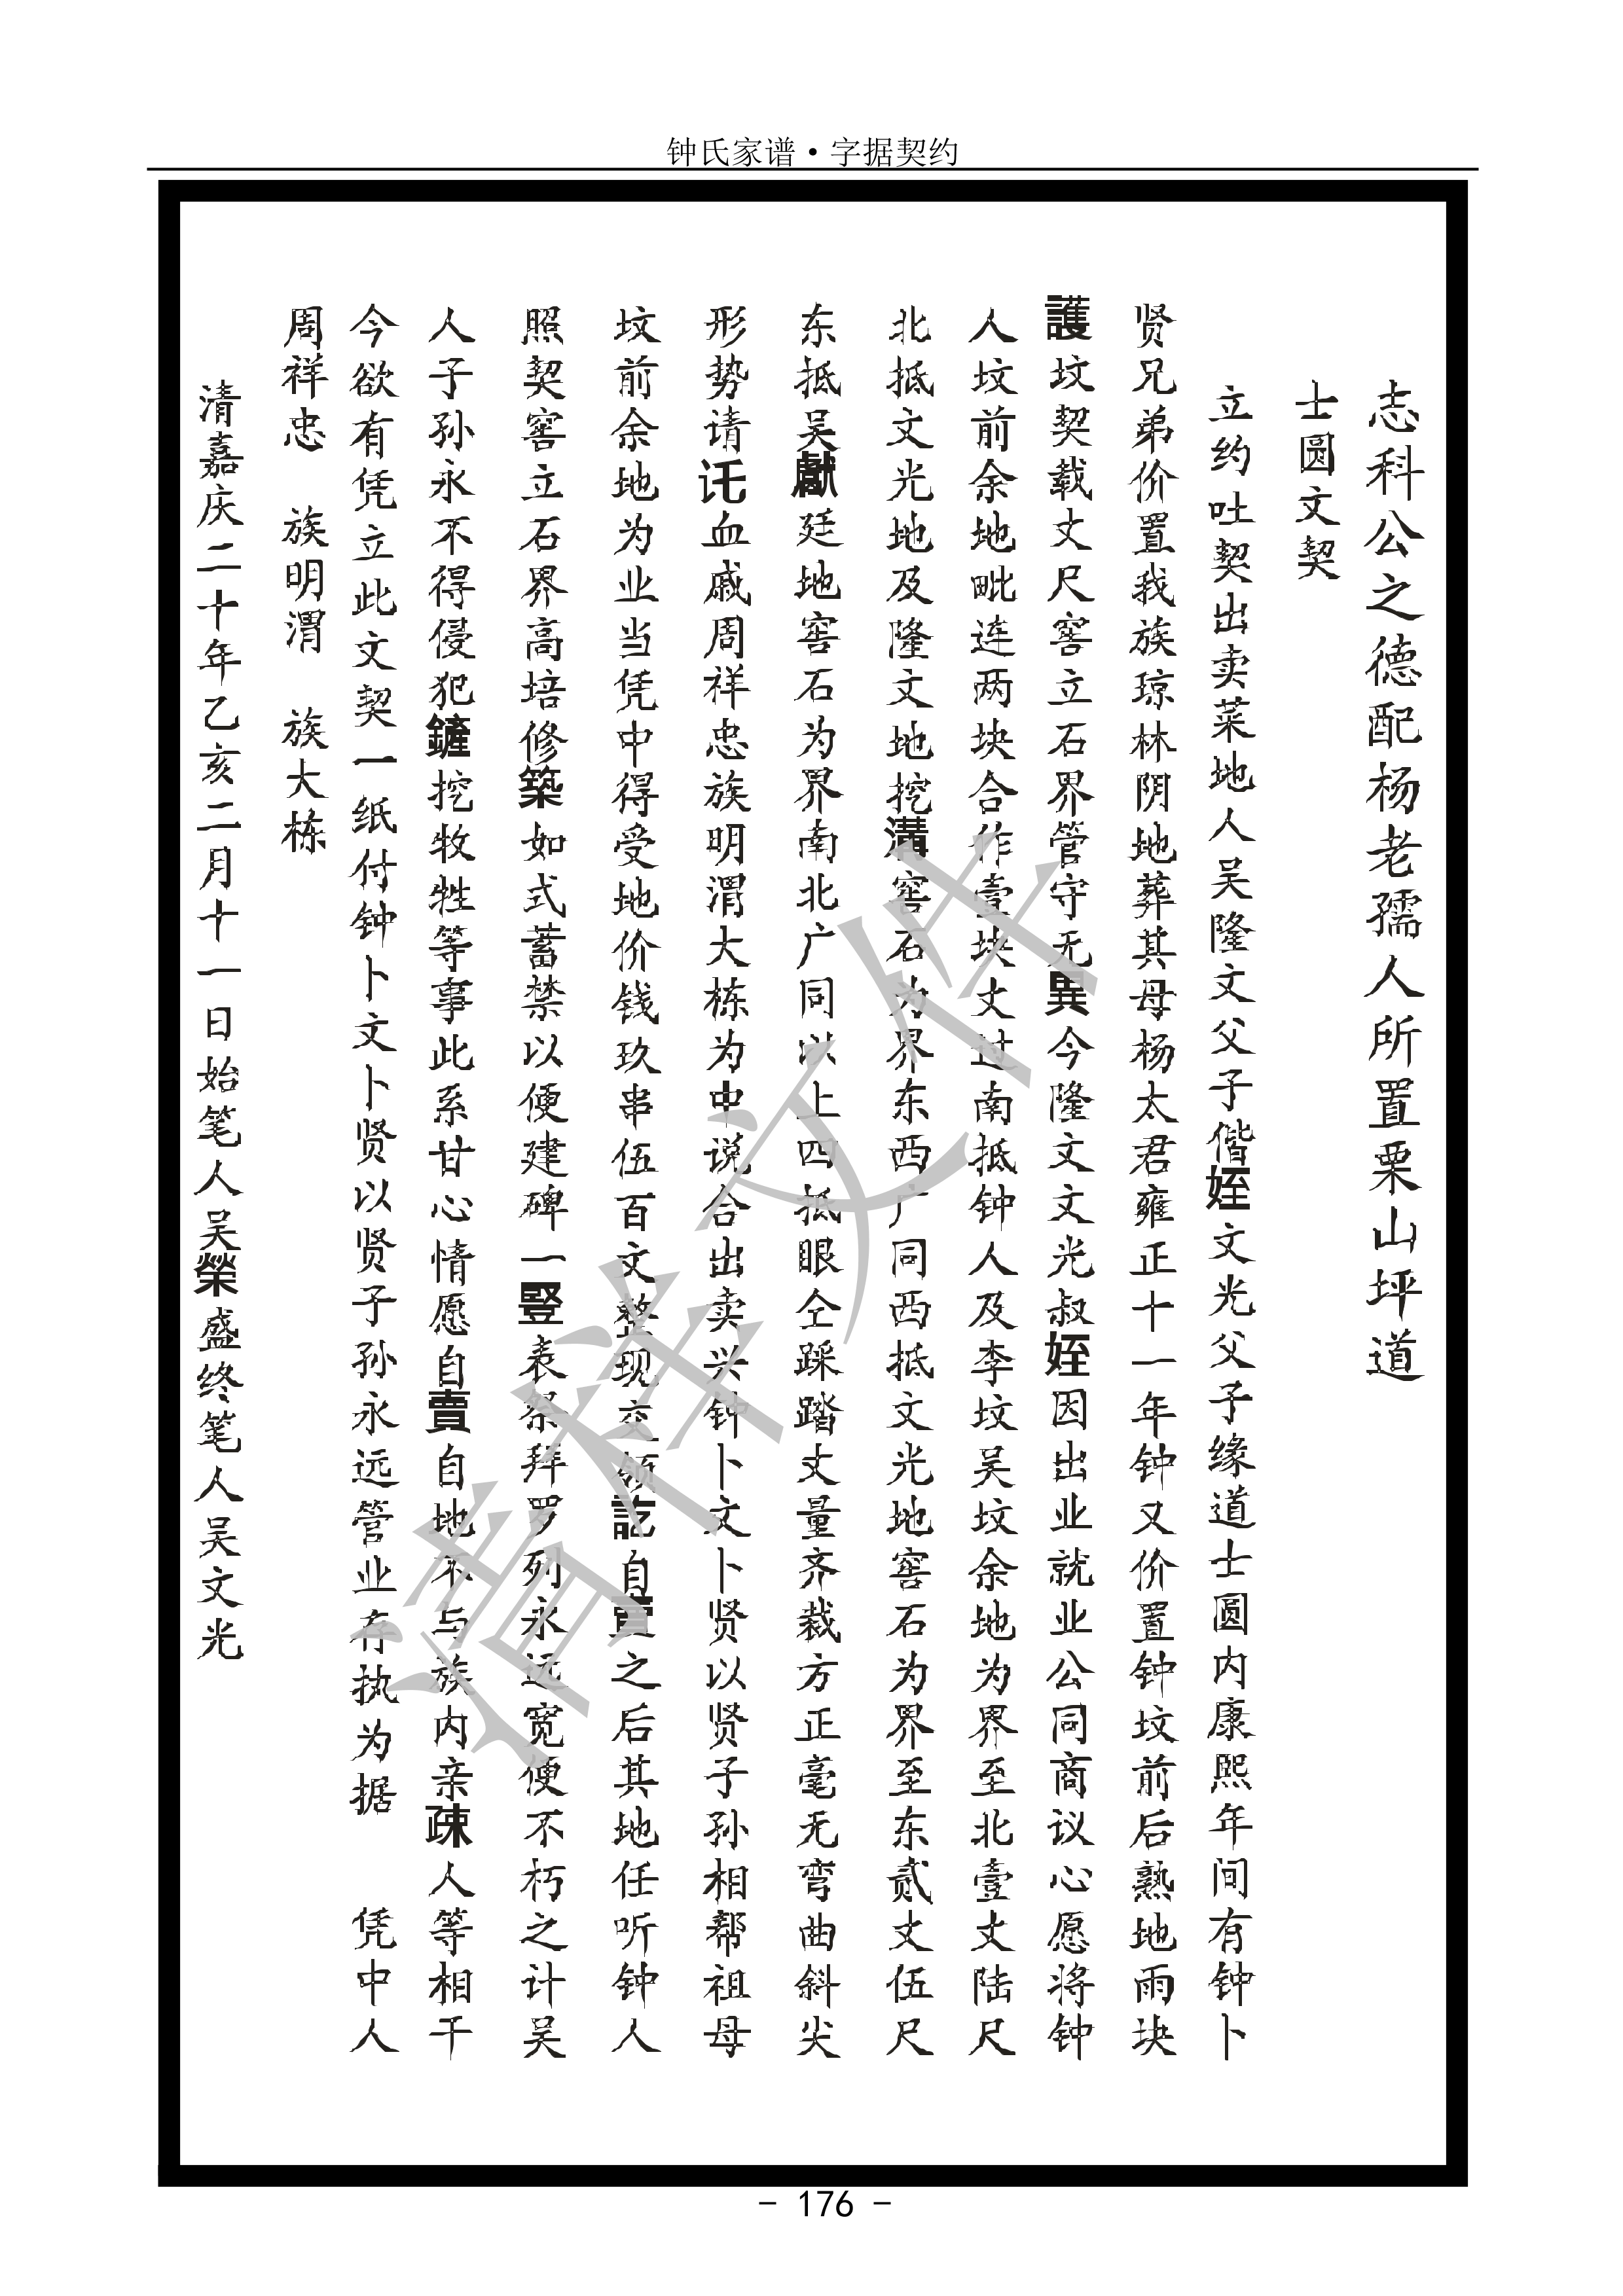 钟氏家谱·字据契约
志科公之德配杨老孺人所置栗山坪道
士圆文契
立约吐契出卖菜地人吴隆文父子偕姪文光父子缘道士圆内康熙年间有钟卜
贤兄弟价置我族琼林阴地葬其母杨太君雍正十一年钟又价置钟坟前后熟地雨块
護坟契载丈尺窖立石界管守无異今隆文文光叔姪因出业就业公同商议心愿将钟
人坟前余地毗连两块合作壹块丈过南抵钟人及李坟吴坟余地为界至北壹丈陆尺
北抵文光地及隆文地挖溝窖石为界东西广同西抵文光地窖石为界至东贰丈伍尺
东抵吴獻廷地窖石为界南北广同以上四抵眼仝踩踏丈量齐裁方正毫无弯曲斜尖
形势请讬血戚周祥忠族明渭大栋为中说合出卖兴钟卜文卜贤以贤子孙相帮祖母
坟前余地为业当凭中得受地价钱玖串伍百文整现交领訖自賣之后其地任听钟人
照契窖立石界高培修築如式蓄禁以便建碑一豎表祭拜罗列永远宽便不朽之计吴
人子孙永不得侵犯鏟挖牧牲等事此系甘心情愿自賣自地不与族内亲疎人等相干
今欲有凭立此文契一纸付钟卜文卜贤以贤子孙永远管业存执为据 凭中人
周祥忠 族明渭 族大栋
清嘉庆二十年乙亥二月十一日始笔人吴榮盛终笔人吴文光
清样文件
- 176 -